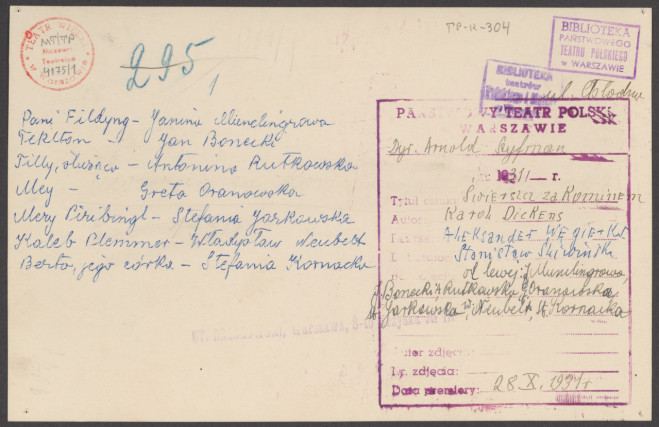 TEATR WIELKI
MT/TP
Muzeum
Teatralne
4175/1
w WARSZAWIE
295
1
TP-R-304
BIBLIOTEKA
PAŃSTWOWEGO
TEATRU POLSKIEGO
w WARSZAWIE
BIBLIOTEKA
teatrów
Pani Fildyng - Janina Munclingrowa
Teklton - Jan Bonecki
Tilly, służąca - Antonina Rutkowska
Mey - Greta Oranowska
Mery Piribingl - Stefania Jarkowska
Kaleb Plemmer - Władysław Neubelt
Berta, jego córka - Stefania Kornacka
PAŃSTWOWY TEATR POLSKI
WARSZAWIE
Dyr. Arnold Szyfman
1931 r.
Tytuł Świerszcz za Kominem
Autor Karol Dickens
Aleksander Węgierko
Stanisław Śliwiński
od lewej J. Munclingrowa,
J. Bonecki, A. Rutkowska, G. Oranowska,
St. Jarkowska, W. Neubelt, St. Kornacka
Autor zdjęcia:
Nr. zdjęcia:
Data premiery: 28 X. 1931 r